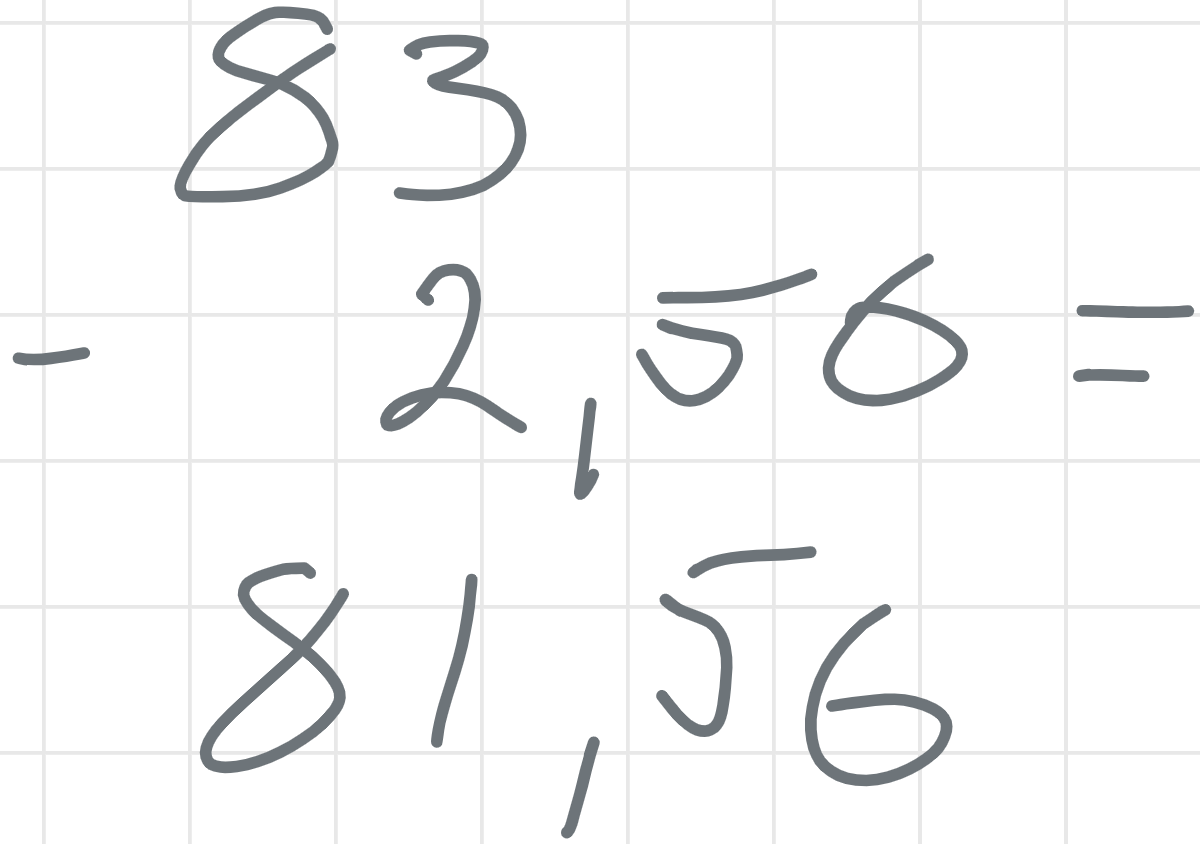 83
- 2,56=
81,56